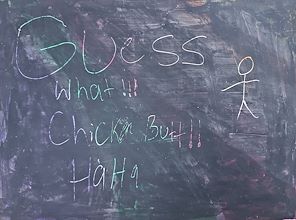 Guess
what!!!
Chickn Butt!!
HaHa